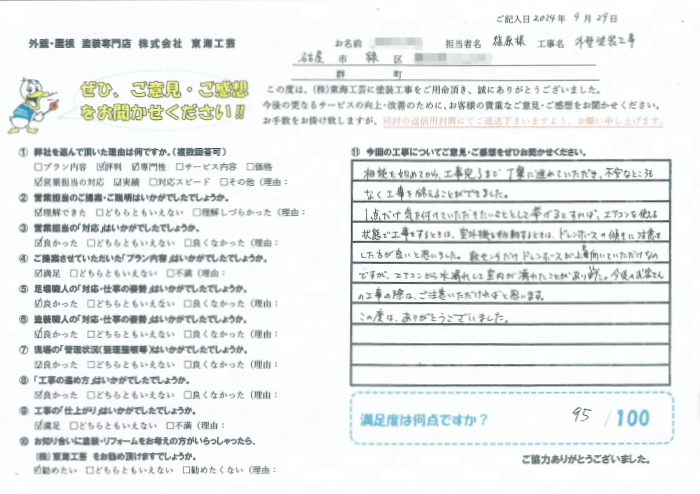 ご記入日 2024年 9月 29日
外壁・屋根 塗装専門店 株式会社 東海工芸
お名前 担当者名 篠原様 工事名 外壁塗装工事
名古屋 市 緑 区
郡 町
ぜひ、ご意見・ご感想
をお聞かせください!!
この度は、(株)東海工芸に塗装工事をご用命頂き、誠にありがとうございました。
今後の更なるサービスの向上・改善のために、お客様の貴重なご意見・ご感想をお聞かせください。
お手数をお掛け致しますが、同封の返信用封筒にてご返送下さいますよう、お願い申し上げます。
① 弊社を選んで頂いた理由は何ですか。(複数回答可)
□プラン内容 ☑評判 ☑専門性 □サービス内容 □価格
☑営業担当の対応 ☑実績 □対応スピード □その他(理由:
② 営業担当のご提案・ご説明はいかがでしたでしょうか。
☑理解できた □どちらともいえない □理解しづらかった(理由:
③ 営業担当の「対応」はいかがでしたでしょうか。
☑良かった □どちらともいえない □良くなかった(理由:
④ ご提案させていただいた「プラン内容」はいかがでしたでしょうか。
☑満足 □どちらともいえない □不満(理由:
⑤ 足場職人の「対応・仕事の姿勢」はいかがでしたでしょうか。
☑良かった □どちらともいえない □良くなかった(理由:
⑥ 塗装職人の「対応・仕事の姿勢」はいかがでしたでしょうか。
☑良かった □どちらともいえない □良くなかった(理由:
⑦ 現場の「管理状況(整理整頓等)」はいかがでしたでしょうか。
☑良かった □どちらともいえない □良くなかった(理由:
⑧ 「工事の進め方」はいかがでしたでしょうか。
☑良かった □どちらともいえない □良くなかった(理由:
⑨ 工事の「仕上がり」はいかがでしたでしょうか。
☑満足 □どちらともいえない □不満(理由:
⑩ お知り合いに塗装・リフォームをお考えの方がいらっしゃったら、
(株)東海工芸 をお勧め頂けますでしょうか。
☑勧めたい □どちらともいえない □勧めたくない(理由:
⑪ 今回の工事についてご意見・ご感想をぜひお聞かせください。
相談を始めてから、工事完了まで丁寧に進めていただき、不安なところも
なく工事を終えることができました。
1点だけ気を付けていただきたいこととして挙げるとすれば、エアコンを使える
状態で工事をするときは、室外機を移動するときは、ドレンホースの傾きに注意を
した方が良いと思いました。数センチだけドレンホースが上を向いていただけなの
ですが、エアコンから水漏れし室内が濡れたことがありました。今後のお客さん
の工事の際は、ご注意いただければと思います。
この度は、ありがとうございました。
満足度は何点ですか? 95 /100
ご協力ありがとうございました。